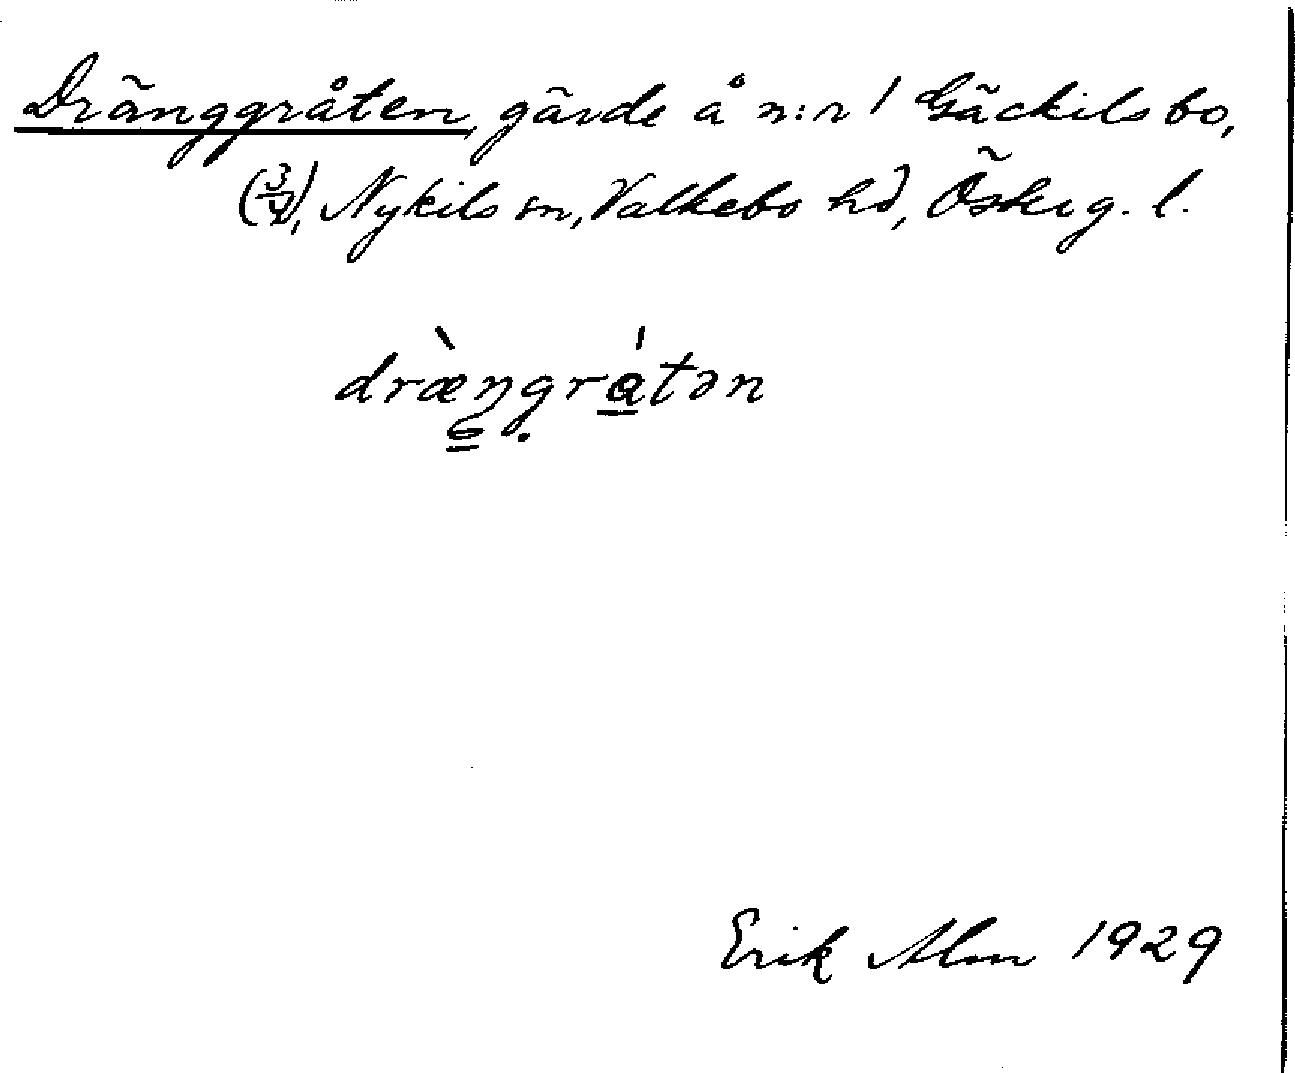 Dränggråten, gärde å n:r 1 Gäckilsbo,
(3/4), Nykils sn, Valkebo hd, Österg. l.
dræ̀ŋgrátən
Erik Alm 1929